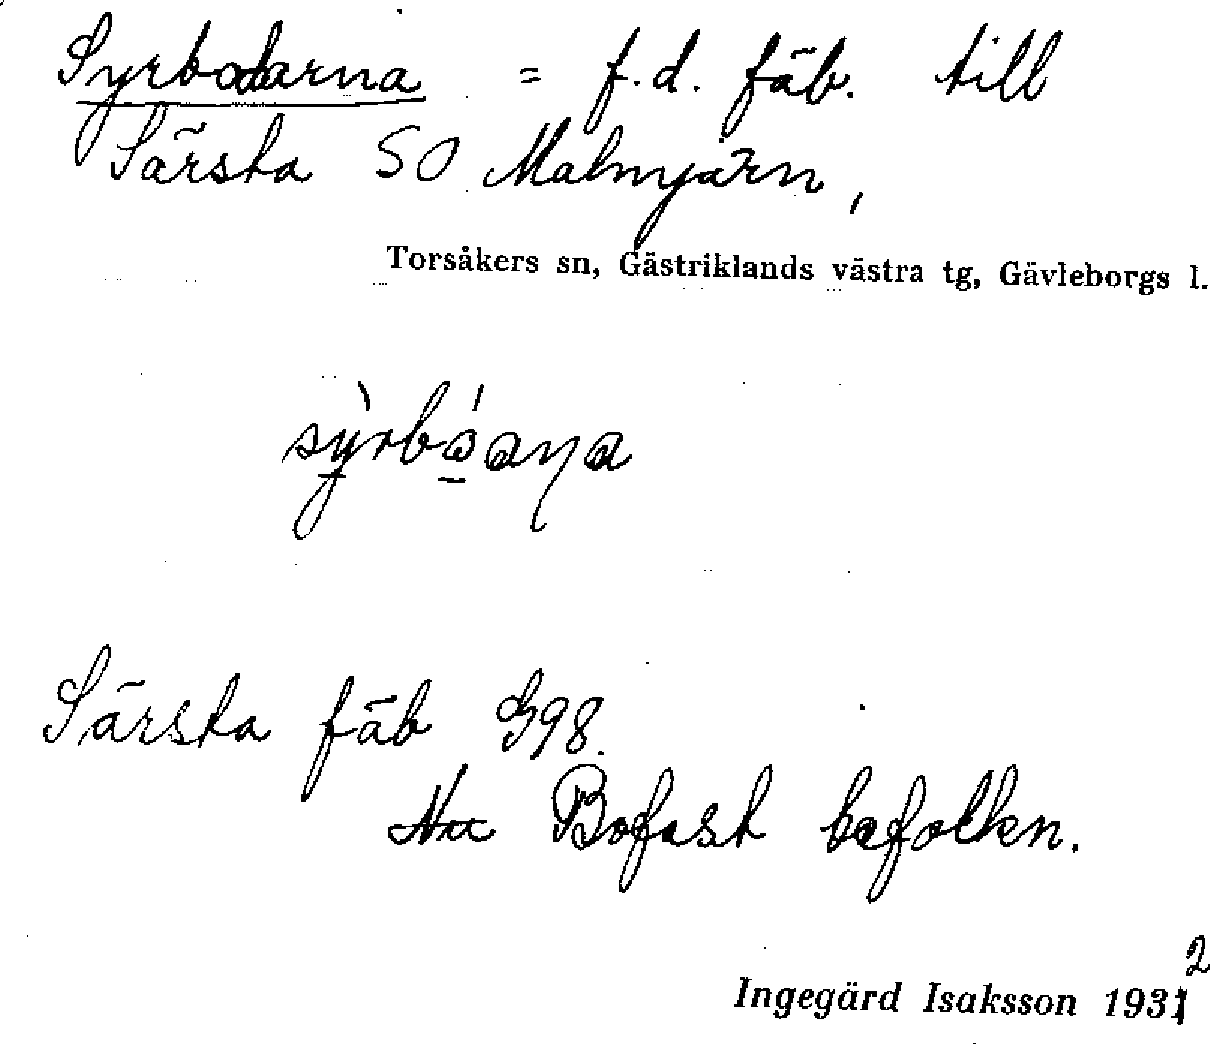 Syrbodarna = f.d. fäb. till
Särsta SO Malmjärn,
Torsåkers sn, Gästriklands västra tg, Gävleborgs l.
Särsta fäb G98.
Nu Bofast befolkn.
2
Ingegärd Isaksson 1931